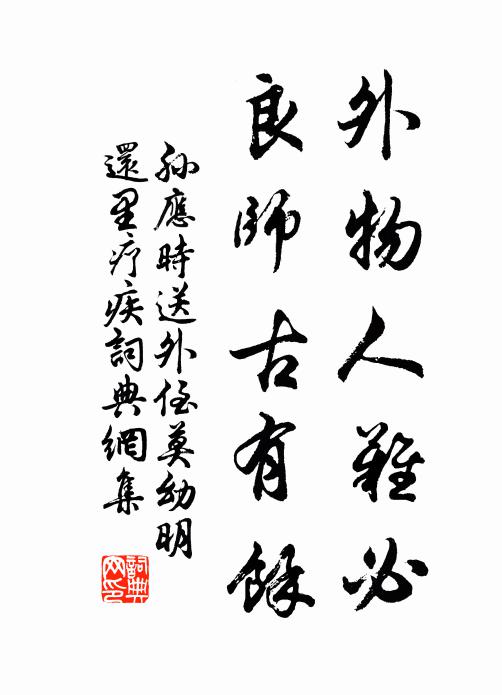 外物人難必
良師古有餘
孫應時送外侄莫幼明
還里疗疾詞典網集
詞典
网印